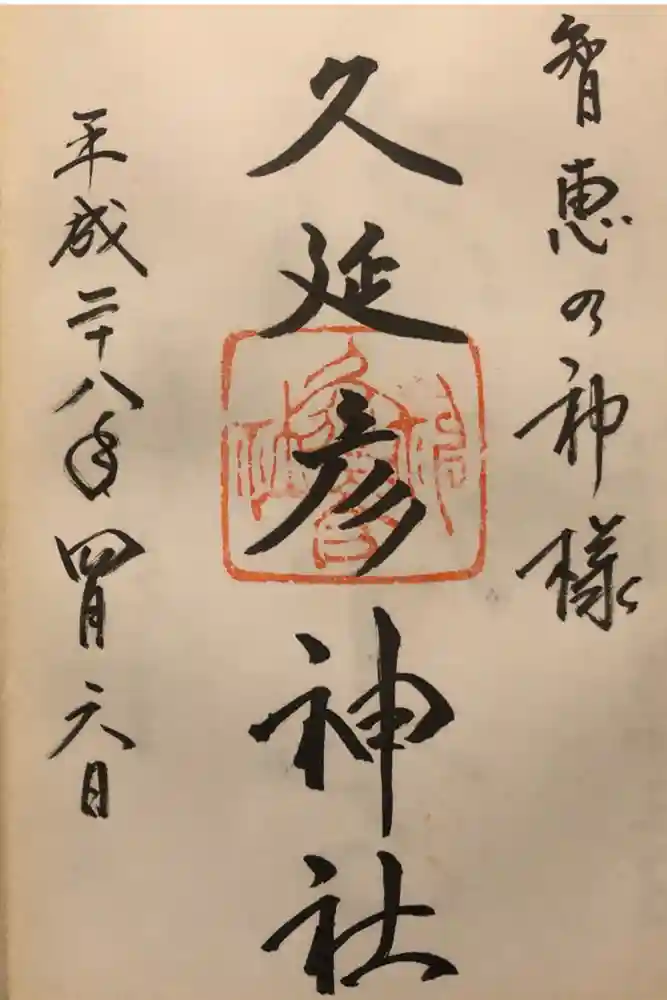 智恵の神様
久延彦神社
平成二十八年四月六日